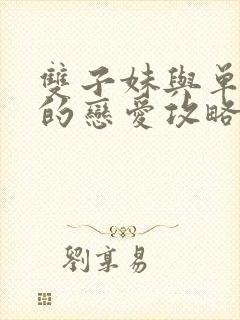 雙子妹與單
的戀愛攻略
劉享易